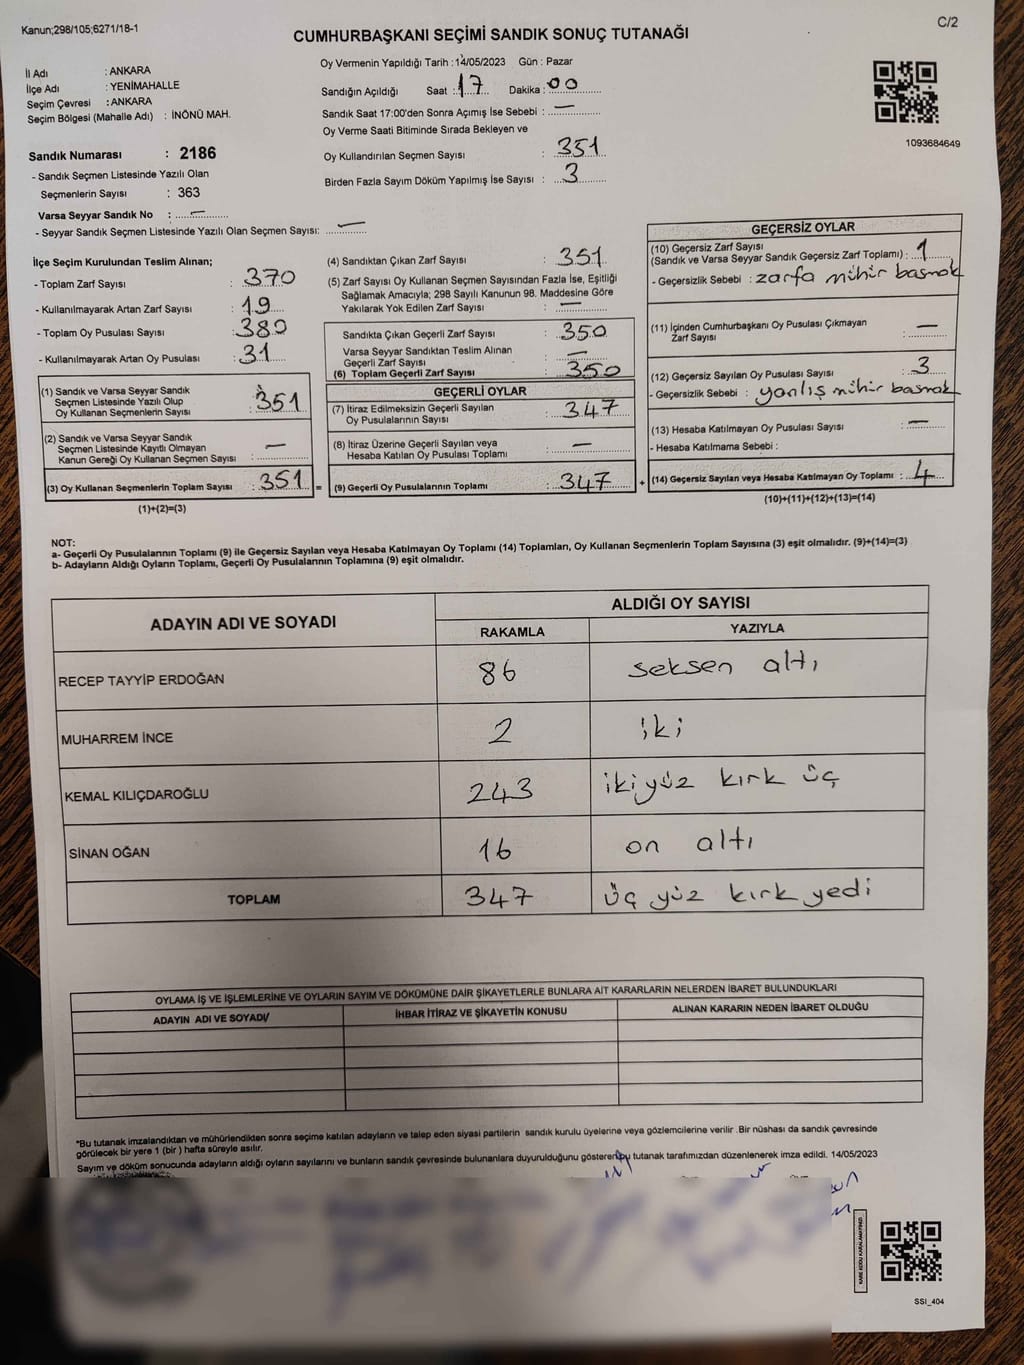 Kanun;298/105;6271/18-1
C/2
CUMHURBAŞKANI SEÇİMİ SANDIK SONUÇ TUTANAĞI
İl Adı : ANKARA
İlçe Adı : YENİMAHALLE
Seçim Çevresi : ANKARA
Seçim Bölgesi (Mahalle Adı) : İNÖNÜ MAH.
Sandık Numarası : 2186
- Sandık Seçmen Listesinde Yazılı Olan
Seçmenlerin Sayısı : 363
Varsa Seyyar Sandık No : —
- Seyyar Sandık Seçmen Listesinde Yazılı Olan Seçmen Sayısı: —
Oy Vermenin Yapıldığı Tarih : 14/05/2023 Gün : Pazar
Sandığın Açıldığı Saat : 17 Dakika : 00
Sandık Saat 17:00'den Sonra Açımış İse Sebebi : —
Oy Verme Saati Bitiminde Sırada Bekleyen ve
Oy Kullandırılan Seçmen Sayısı : 351
Birden Fazla Sayım Döküm Yapılmış İse Sayısı : 3
1093684649
İlçe Seçim Kurulundan Teslim Alınan;
- Toplam Zarf Sayısı : 370
- Kullanılmayarak Artan Zarf Sayısı : 19
- Toplam Oy Pusulası Sayısı : 380
- Kullanılmayarak Artan Oy Pusulası : 31
(1) Sandık ve Varsa Seyyar Sandık
Seçmen Listesinde Yazılı Olup
Oy Kullanan Seçmenlerin Sayısı : 351
(2) Sandık ve Varsa Seyyar Sandık
Seçmen Listesinde Kayıtlı Olmayan
Kanun Gereği Oy Kullanan Seçmen Sayısı : —
(3) Oy Kullanan Seçmenlerin Toplam Sayısı : 351
(1)+(2)=(3)
(4) Sandıktan Çıkan Zarf Sayısı : 351
(5) Zarf Sayısı Oy Kullanan Seçmen Sayısından Fazla İse, Eşitliği
Sağlamak Amacıyla; 298 Sayılı Kanunun 98. Maddesine Göre
Yakılarak Yok Edilen Zarf Sayısı : —
Sandıkta Çıkan Geçerli Zarf Sayısı : 350
Varsa Seyyar Sandıktan Teslim Alınan
Geçerli Zarf Sayısı : —
(6) Toplam Geçerli Zarf Sayısı : 350
GEÇERLİ OYLAR
(7) İtiraz Edilmeksizin Geçerli Sayılan
Oy Pusulalarının Sayısı : 347
(8) İtiraz Üzerine Geçerli Sayılan veya
Hesaba Katılan Oy Pusulası Toplamı : —
= (9) Geçerli Oy Pusulalarının Toplamı : 347 +
GEÇERSİZ OYLAR
(10) Geçersiz Zarf Sayısı
(Sandık ve Varsa Seyyar Sandık Geçersiz Zarf Toplamı) : 1
- Geçersizlik Sebebi : zarfa mühür basmak
(11) İçinden Cumhurbaşkanı Oy Pusulası Çıkmayan
Zarf Sayısı : —
(12) Geçersiz Sayılan Oy Pusulası Sayısı : 3
- Geçersizlik Sebebi : yanlış mühür basmak
(13) Hesaba Katılmayan Oy Pusulası Sayısı : —
- Hesaba Katılmama Sebebi :
(14) Geçersiz Sayılan veya Hesaba Katılmayan Oy Toplamı : 4
(10)+(11)+(12)+(13)=(14)
NOT:
a- Geçerli Oy Pusulalarının Toplamı (9) ile Geçersiz Sayılan veya Hesaba Katılmayan Oy Toplamı (14) Toplamları, Oy Kullanan Seçmenlerin Toplam Sayısına (3) eşit olmalıdır. (9)+(14)=(3)
b- Adayların Aldığı Oyların Toplamı, Geçerli Oy Pusulalarının Toplamına (9) eşit olmalıdır.
ADAYIN ADI VE SOYADI
ALDIĞI OY SAYISI
RAKAMLA YAZIYLA
RECEP TAYYİP ERDOĞAN 86 seksen altı
MUHARREM İNCE 2 iki
KEMAL KILIÇDAROĞLU 243 ikiyüz kırk üç
SİNAN OĞAN 16 on altı
TOPLAM 347 üç yüz kırk yedi
OYLAMA İŞ VE İŞLEMLERİNE VE OYLARIN SAYIM VE DÖKÜMÜNE DAİR ŞİKAYETLERLE BUNLARA AİT KARARLARIN NELERDEN İBARET BULUNDUKLARI
ADAYIN ADI VE SOYADI İHBAR İTİRAZ VE ŞİKAYETİN KONUSU ALINAN KARARIN NEDEN İBARET OLDUĞU
*Bu tutanak imzalandıktan ve mühürlendikten sonra seçime katılan adayların ve talep eden siyasi partilerin sandık kurulu üyelerine veya gözlemcilerine verilir .Bir nüshası da sandık çevresinde
görülecek bir yere 1 (bir ) hafta süreyle asılır.
Sayım ve döküm sonucunda adayların aldığı oyların sayılarını ve bunların sandık çevresinde bulunanlara duyurulduğunu gösteren bu tutanak tarafımızdan düzenlenerek imza edildi. 14/05/2023
SSI_404